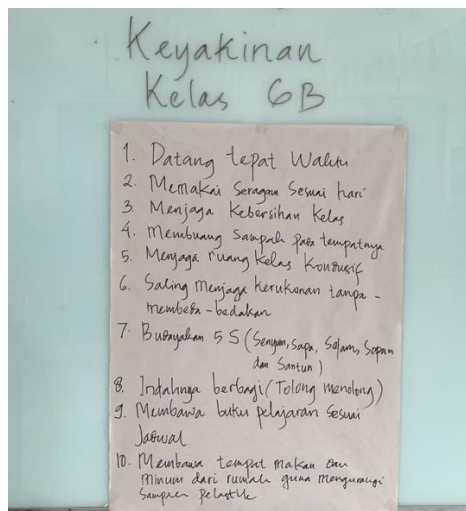 Keyakinan
Kelas 6B
1. Datang tepat Waktu
2. Memakai Seragam Sesuai hari
3. Menjaga Kebersihan Kelas
4. Membuang Sampah pada tempatnya
5. Menjaga ruang Kelas Kondusif
6. Saling menjaga kerukunan tanpa -
membeda - bedakan
7. Budayakan 5 S (Senyum, Sapa, Salam, Sopan
dan Santun)
8. Indahnya berbagi (Tolong menolong)
9. Membawa buku pelajaran Sesuai
Jadwal
10. Membawa tempat makan dan
minum dari rumah guna mengurangi
Sampah pelastik